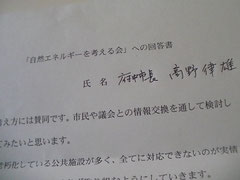 「自然エネルギーを考える会」への回答書
氏 名 府中市長 高野律雄
考え方には賛同です。市民や議会との情報交換を通して検討し
てみたいと思います。
老朽化している公共施設が多く、全てに対応できないのが実情